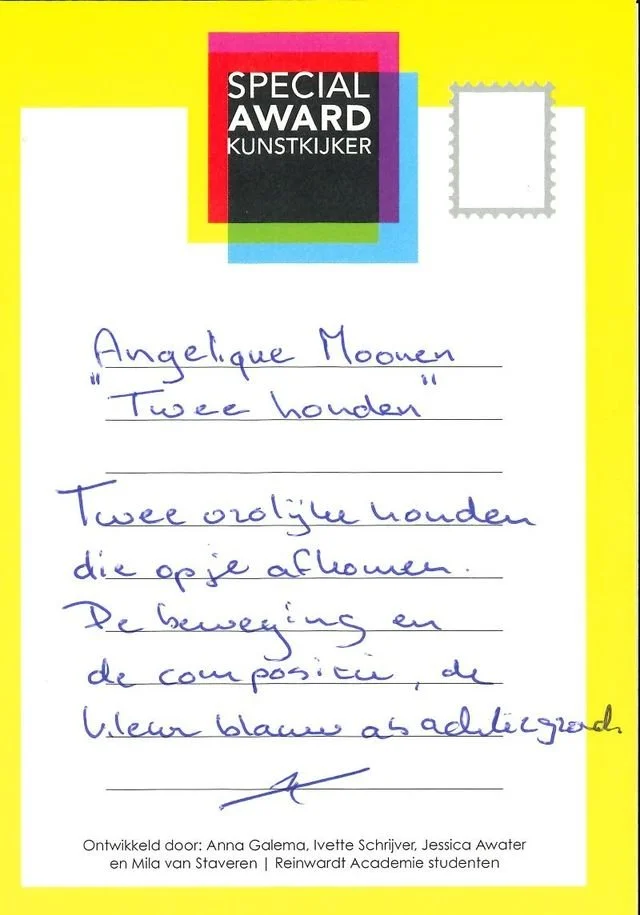 SPECIAL
AWARD
KUNSTKIJKER
Angelique Moonen
"Twee honden"
Twee vrolijke honden
die op je afkomen.
De beweging en
de compositie, de
kleur blauw als achtergrond.
Ontwikkeld door: Anna Galema, Ivette Schrijver, Jessica Awater
en Mila van Staveren | Reinwardt Academie studenten